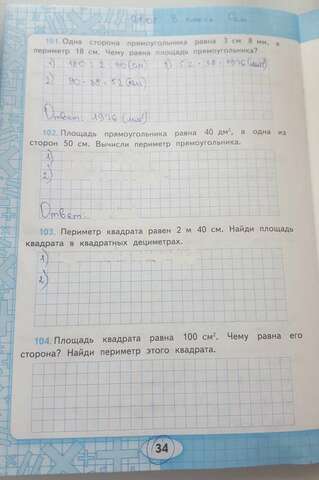 101. Одна сторона прямоугольника равна 3 см 8 мм, а
периметр 18 см. Чему равна площадь прямоугольника?
1) 180 : 2 = 90 (см) 3) 52 · 38 = 1976 (мм²)
2) 90 - 38 = 52 (мм)
Ответ: 1976 (мм²)
102. Площадь прямоугольника равна 40 дм², а одна из
сторон 50 см. Вычисли периметр прямоугольника.
1)
2)
Ответ:
103. Периметр квадрата равен 2 м 40 см. Найди площадь
квадрата в квадратных дециметрах.
1)
2)
104. Площадь квадрата равна 100 см². Чему равна его
сторона? Найди периметр этого квадрата.
34